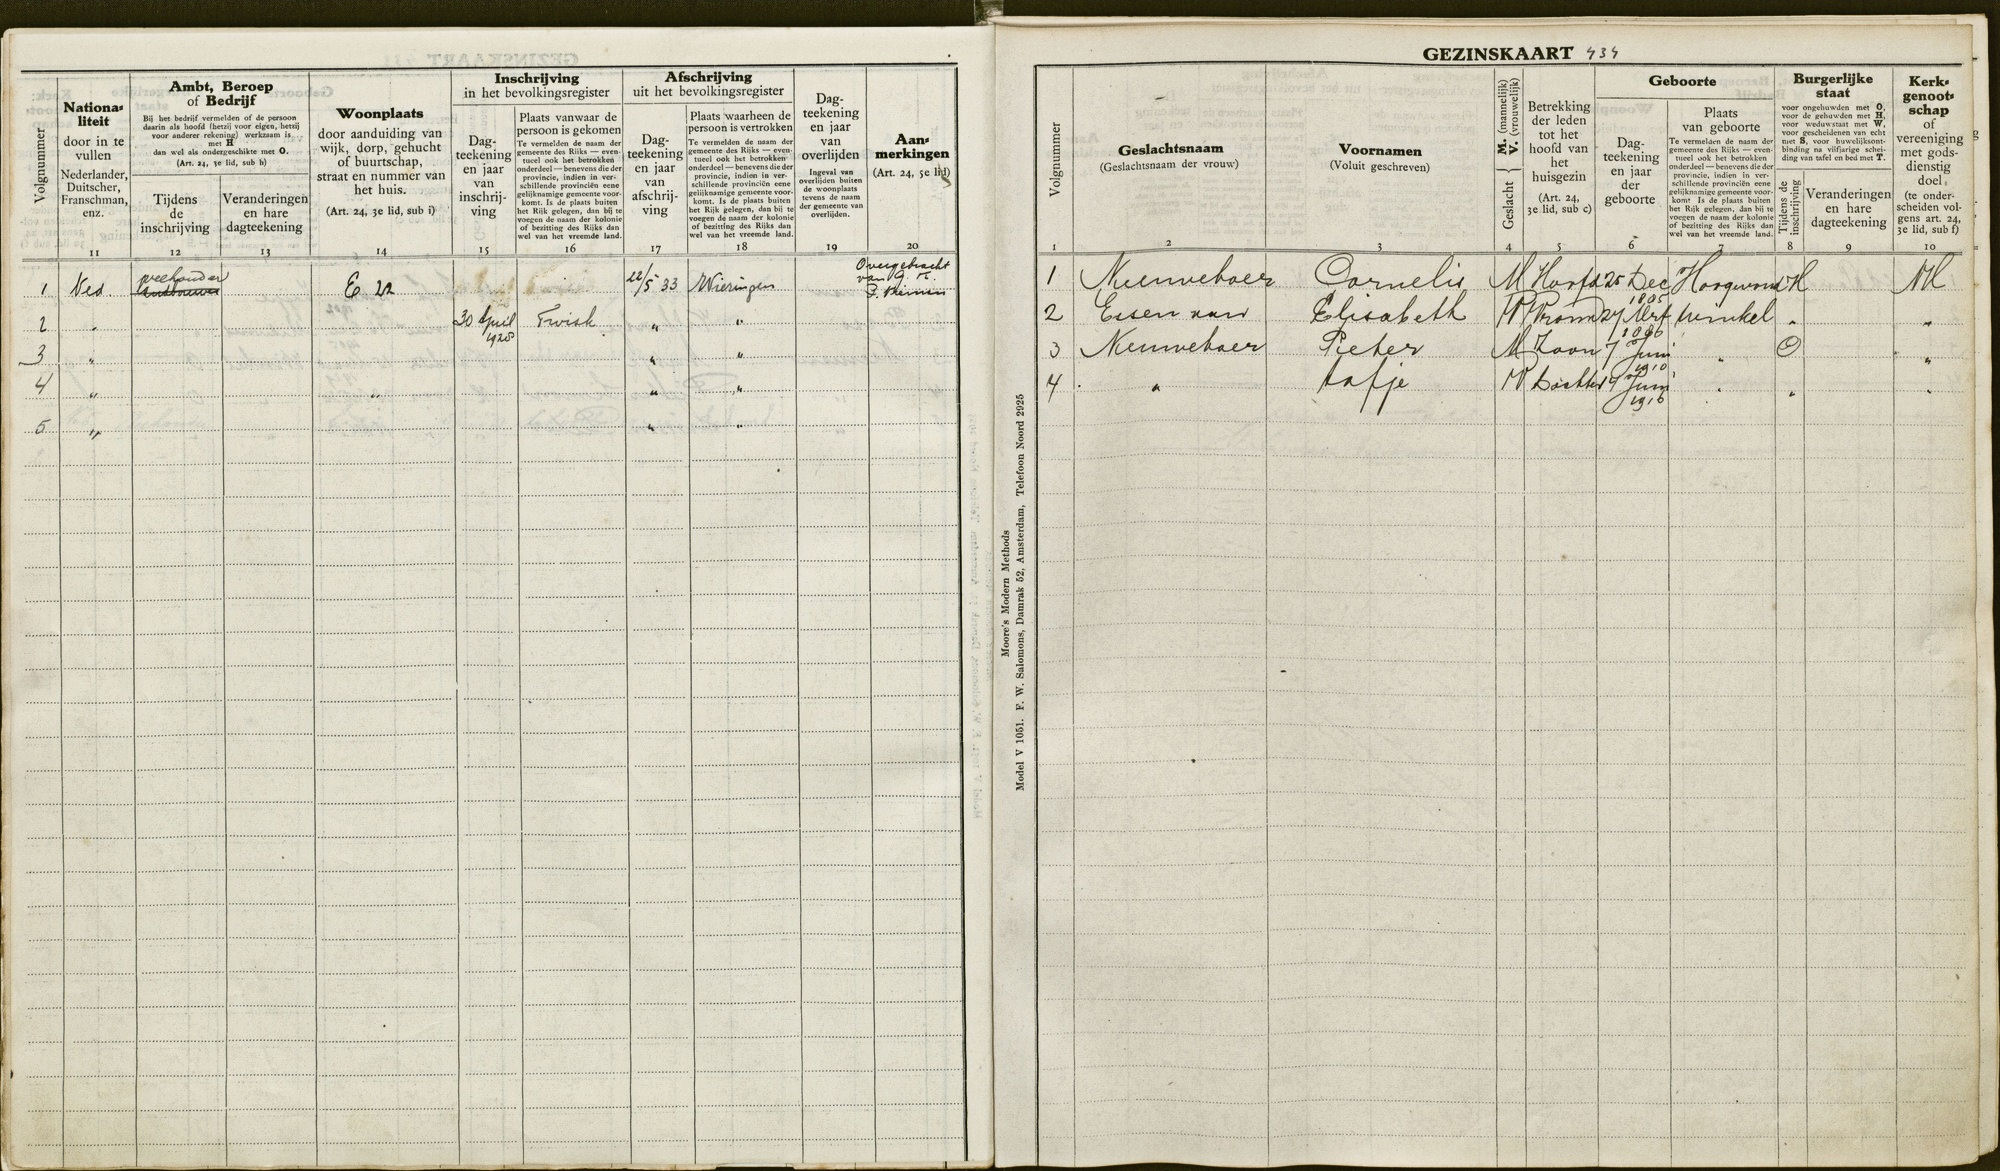 Volgnummer
Nationa-
liteit
door in te
vullen
Nederlander,
Duitscher,
Franschman,
enz.
11
Ambt, Beroep
of Bedrijf
Bij het bedrijf vermelden of de persoon
daarin als hoofd (hetzij voor eigen, hetzij
voor anderer rekening) werkzaam is
met H
dan wel als ondergeschikte met O.
(Art. 24, 3e lid, sub h)
Tijdens
de
inschrijving
12
Veranderingen
en hare
dagteekening
13
Woonplaats
door aanduiding van
wijk, dorp, gehucht
of buurtschap,
straat en nummer van
het huis.
(Art. 24, 3e lid, sub i)
14
Inschrijving
in het bevolkingsregister
Dag-
teekening
en jaar
van
inschrij-
ving
15
Plaats vanwaar de
persoon is gekomen
Te vermelden de naam der
gemeente des Rijks — even-
tueel ook het betrokken
onderdeel — benevens die der
provincie, indien in ver-
schillende provinciën eene
gelijknamige gemeente voor-
komt. Is de plaats buiten
het Rijk gelegen, dan bij te
voegen de naam der kolonie
of bezitting des Rijks dan
wel van het vreemde land.
16
Afschrijving
uit het bevolkingsregister
Dag-
teekening
en jaar
van
afschrij-
ving
17
Plaats waarheen de
persoon is vertrokken
Te vermelden de naam der
gemeente des Rijks — even-
tueel ook het betrokken
onderdeel — benevens die der
provincie, indien in ver-
schillende provinciën eene
gelijknamige gemeente voor-
komt. Is de plaats buiten
het Rijk gelegen, dan bij te
voegen de naam der kolonie
of bezitting des Rijks dan
wel van het vreemde land.
18
Dag-
teekening
en jaar
van
overlijden
Ingeval van
overlijden buiten
de woonplaats
tevens de naam
der gemeente van
overlijden.
19
Aan-
merkingen
(Art. 24, 5e lid)
20
1 Ned veehouder E 22 22/5 33 Wieringen Overgebracht
van G. K.
2 " 30 April 1928 Twisk " "
3 " " "
4 " " " "
5 " " "
GEZINSKAART 434
Volgnummer
1
Geslachtsnaam
(Geslachtsnaam der vrouw)
2
Voornamen
(Voluit geschreven)
3
Geslacht { M. (mannelijk)
V. (vrouwelijk)
4
Betrekking
der leden
tot het
hoofd van
het
huisgezin
(Art. 24,
3e lid, sub c)
5
Geboorte
Dag-
teekening
en jaar
der
geboorte
6
Plaats
van geboorte
Te vermelden de naam der
gemeente des Rijks — even-
tueel ook het betrokken
onderdeel — benevens die der
provincie, indien in ver-
schillende provinciën eene
gelijknamige gemeente voor-
komt. Is de plaats buiten
het Rijk gelegen, dan bij te
voegen de naam der kolonie
of bezitting des Rijks dan
wel van het vreemde land.
7
Burgerlijke
staat
voor ongehuwden met O,
voor de gehuwden met H,
voor weduwstaat met W,
voor gescheidenen van echt
met S, voor huwelijksont-
binding na vijfjarige schei-
ding van tafel en bed met T.
Tijdens de
inschrijving
8
Veranderingen
en hare
dagteekening
9
Kerk-
genoot-
schap
of
vereeniging
met gods-
dienstig
doel
(te onder-
scheiden vol-
gens art. 24,
3e lid, sub f)
10
1 Nieuweboer Cornelis M Hoofd 25 Dec Hoogwoud H NH
2 Essen van Elisabeth V Vrouw 27 Winkel " "
3 Nieuweboer Pieter M Zoon 7 Juni 1910 " O "
4 " Aafje V Dochter 14 Juni 1916 " " "
Moore's Modern Methods
Model V 1051. F. W. Salomons, Damrak 52, Amsterdam, Telefoon Noord 2925